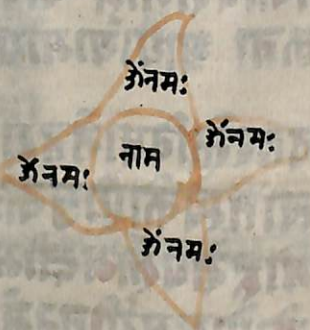 ॐनमः
ॐनमः
नाम
ॐनमः
ॐनमः